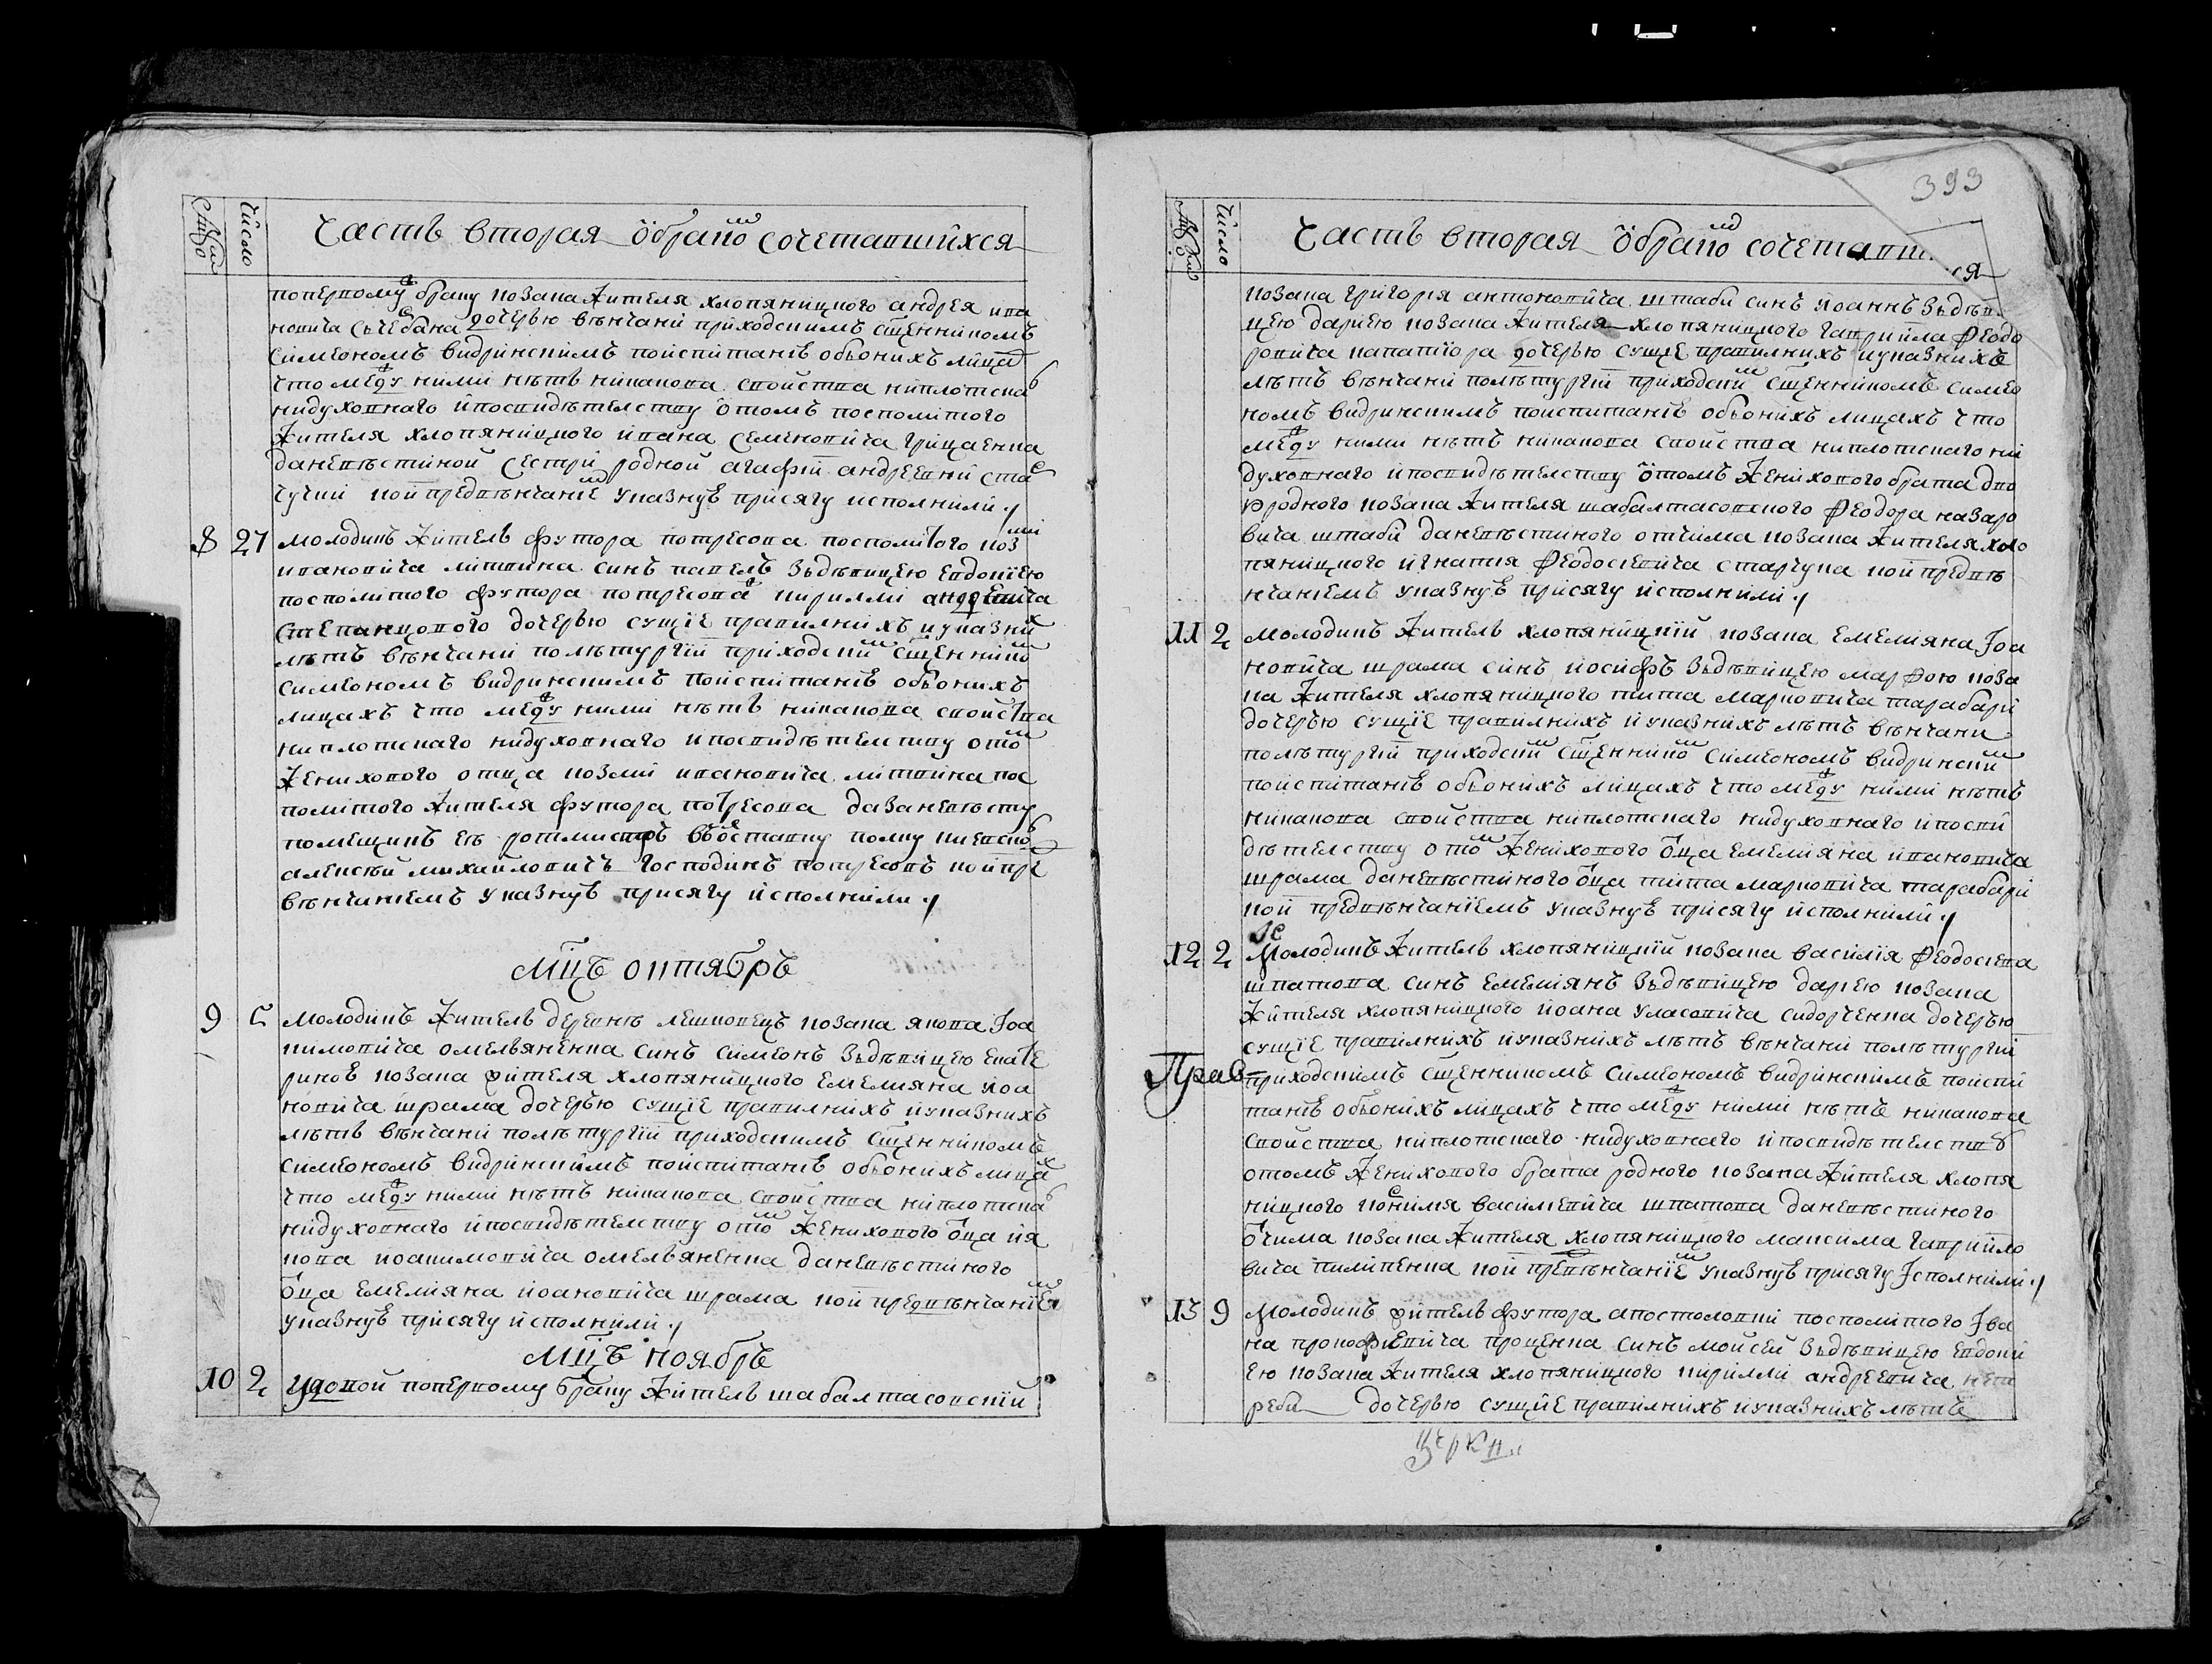 Число
Часть вторая ѡ бракомъ сочетавшихся
поперво му браку козака жителя хлопяницкого андрея ива
новича дочерью вѣнчани приходскимъ сщенникомъ
симеономъ видринскимъ поиспитаніѣ обьонихъ лицах
что между ними нѣтъ никакова свойства ни плотска
ни духовнаго и посвидѣтелству ѡ томъ посполитого
жителя хлопяницкого ивана семеновича грицаенка
да невѣстиной сестри родной агафіи андреевни
кои предвѣнчаніем указнуѣ присягу исполнили
8 27 Молодикъ житель футора покресова посполитого козми
ивановича литвина синъ павелъ здѣвицею евдокіею
посполитого футора покресова кирилли андреевича
степанцового дочерью сущіе правилнихъ и указних
лѣтъ вѣнчани по лѣтургіи приходским сщенником
симеономъ видринскимъ поиспитаніѣ обьонихъ
лицахъ что между ними нѣтъ никакова свойства
ни плотскаго ни духовнаго и посвидѣтелству о том
женихового отца козми ивановича литвина пос
политого жителя футора покресова да за невѣсту
помещикъ еѣ ротмистръ
алексѣй михайловичъ господинъ покресовъ кои пре
вѣнчаниемъ указнуѣ присягу исполнили
Мцъ октябрь
9 5 Молодикъ житель деревнѣ лешковецъ козака якова Іоа
кимовича омельяненка синъ симеонъ здѣвицею екате
риноѣ козака жителя хлопяницкого емелияна иоа
новича шрама дочерью сущіе правилнихъ и указнихъ
лѣтъ вѣнчани по лѣтургіи приходскимъ сщенникомъ
симеономъ видринскимъ поиспитаніѣ обьонихъ лицах
что между ними нѣтъ никакова свойства ни плотска
ни духовнаго и посвидѣтелству о том женихового ѡца ия
кова иоакимовича омельяненка да невѣстиного
ѡца емелияна иоановича шрама кои предвѣнчаніем
указнуѣ присягу исполнили
Мцъ ноябрь
10 2 Удовой поперкому браку житель шабалтасовскій
393
Число
Часть вторая ѡ бракомъ сочетавши ся
козака григория антоновича штаби синъ иоаннъ здѣви
цею дариею козака жителя хлопяницкого гавриила феодо
ровича дочерью сущіе правилнихъ и указнихъ
лѣтъ вѣнчани по лѣтургіи приходским сщенникомъ симео
номъ видринскимъ поиспитаніѣ обьонихъ лицахъ что
между ними нѣтъ никакова свойства ни плотскаго ни
духовнаго и посвидѣтелству ѡ томъ женихового брата дво
юродного козака жителя шабалтасовского феодора назаро
вича штаби да невѣстиного отчима козака жителя хло
пяницкого игнатия феодосиевича старгуна кои предвѣ
нчаніемъ указнуѣ присягу исполнили
11 2 Молодикъ житель хлопяницкій козака емелияна Іоа
новича шрама синъ иосифъ здѣвицею марфою коза
ка жителя хлопяницкого тита марковича тарабари
дочерью сущіе правилнихъ и указнихъ лѣтъ вѣнчани
по лѣтургіи приходским сщенником симеономъ видринским
поиспитаніѣ обьонихъ лицахъ что между ними нѣтъ
никакова свойства ни плотскаго ни духовнаго и посви
дѣтелству о том женихового ѡца емелияна ивановича
шрама да невѣстиного ѡца тита марковича тарабари
кои предвѣнчаніемъ указнуѣ присягу исполнили
12 2 Молодикъ житель хлопяницкій козака василія феодосіева
шпакова синъ емелиянъ здѣвицею дариею козака
жителя хлопяницкого иоана уласовича сидорченка дочерью
сущіе правилнихъ и указнихъ лѣтъ вѣнчани по лѣтургіи
приходскимъ сщенникомъ симеономъ видринскимъ поиспи
таніѣ обьонихъ лицахъ что между ними нѣтъ никакова
свойства ни плотскаго ни духовнаго и посвидѣтелству
о томъ женихового брата родного козака жителя хлопя
ницкого василиевича шпакова да невѣстиного
ѡтчима козака жителя хлопяницкого максима гавриило
вича пилипенка кои предвѣнчаніем указнуѣ присягу Ісполнили
13 9 Молодикъ житель футора апостоловки посполитого Іва
на прокофиевича проценка синъ мойсей здѣвицею евдоки
ею козака жителя хлопяницкого кирилли андреевича
дочерью сущіе правилнихъ и указнихъ лѣтъ
Прав
церкви